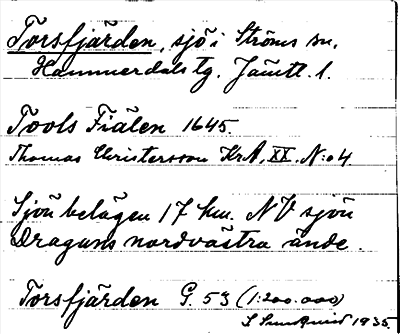 Torsfjärden, sjö i Ströms sn.
Hammerdals tg. Jämtl. l.
Tools Fiälen 1645.
Thomas Christersson KrA, XX. N:o 4
Sjön belägen 17 km. NV sjön
Draguns nordvästra ände.
Torsfjärden G. 53 (1:200.000)
1935